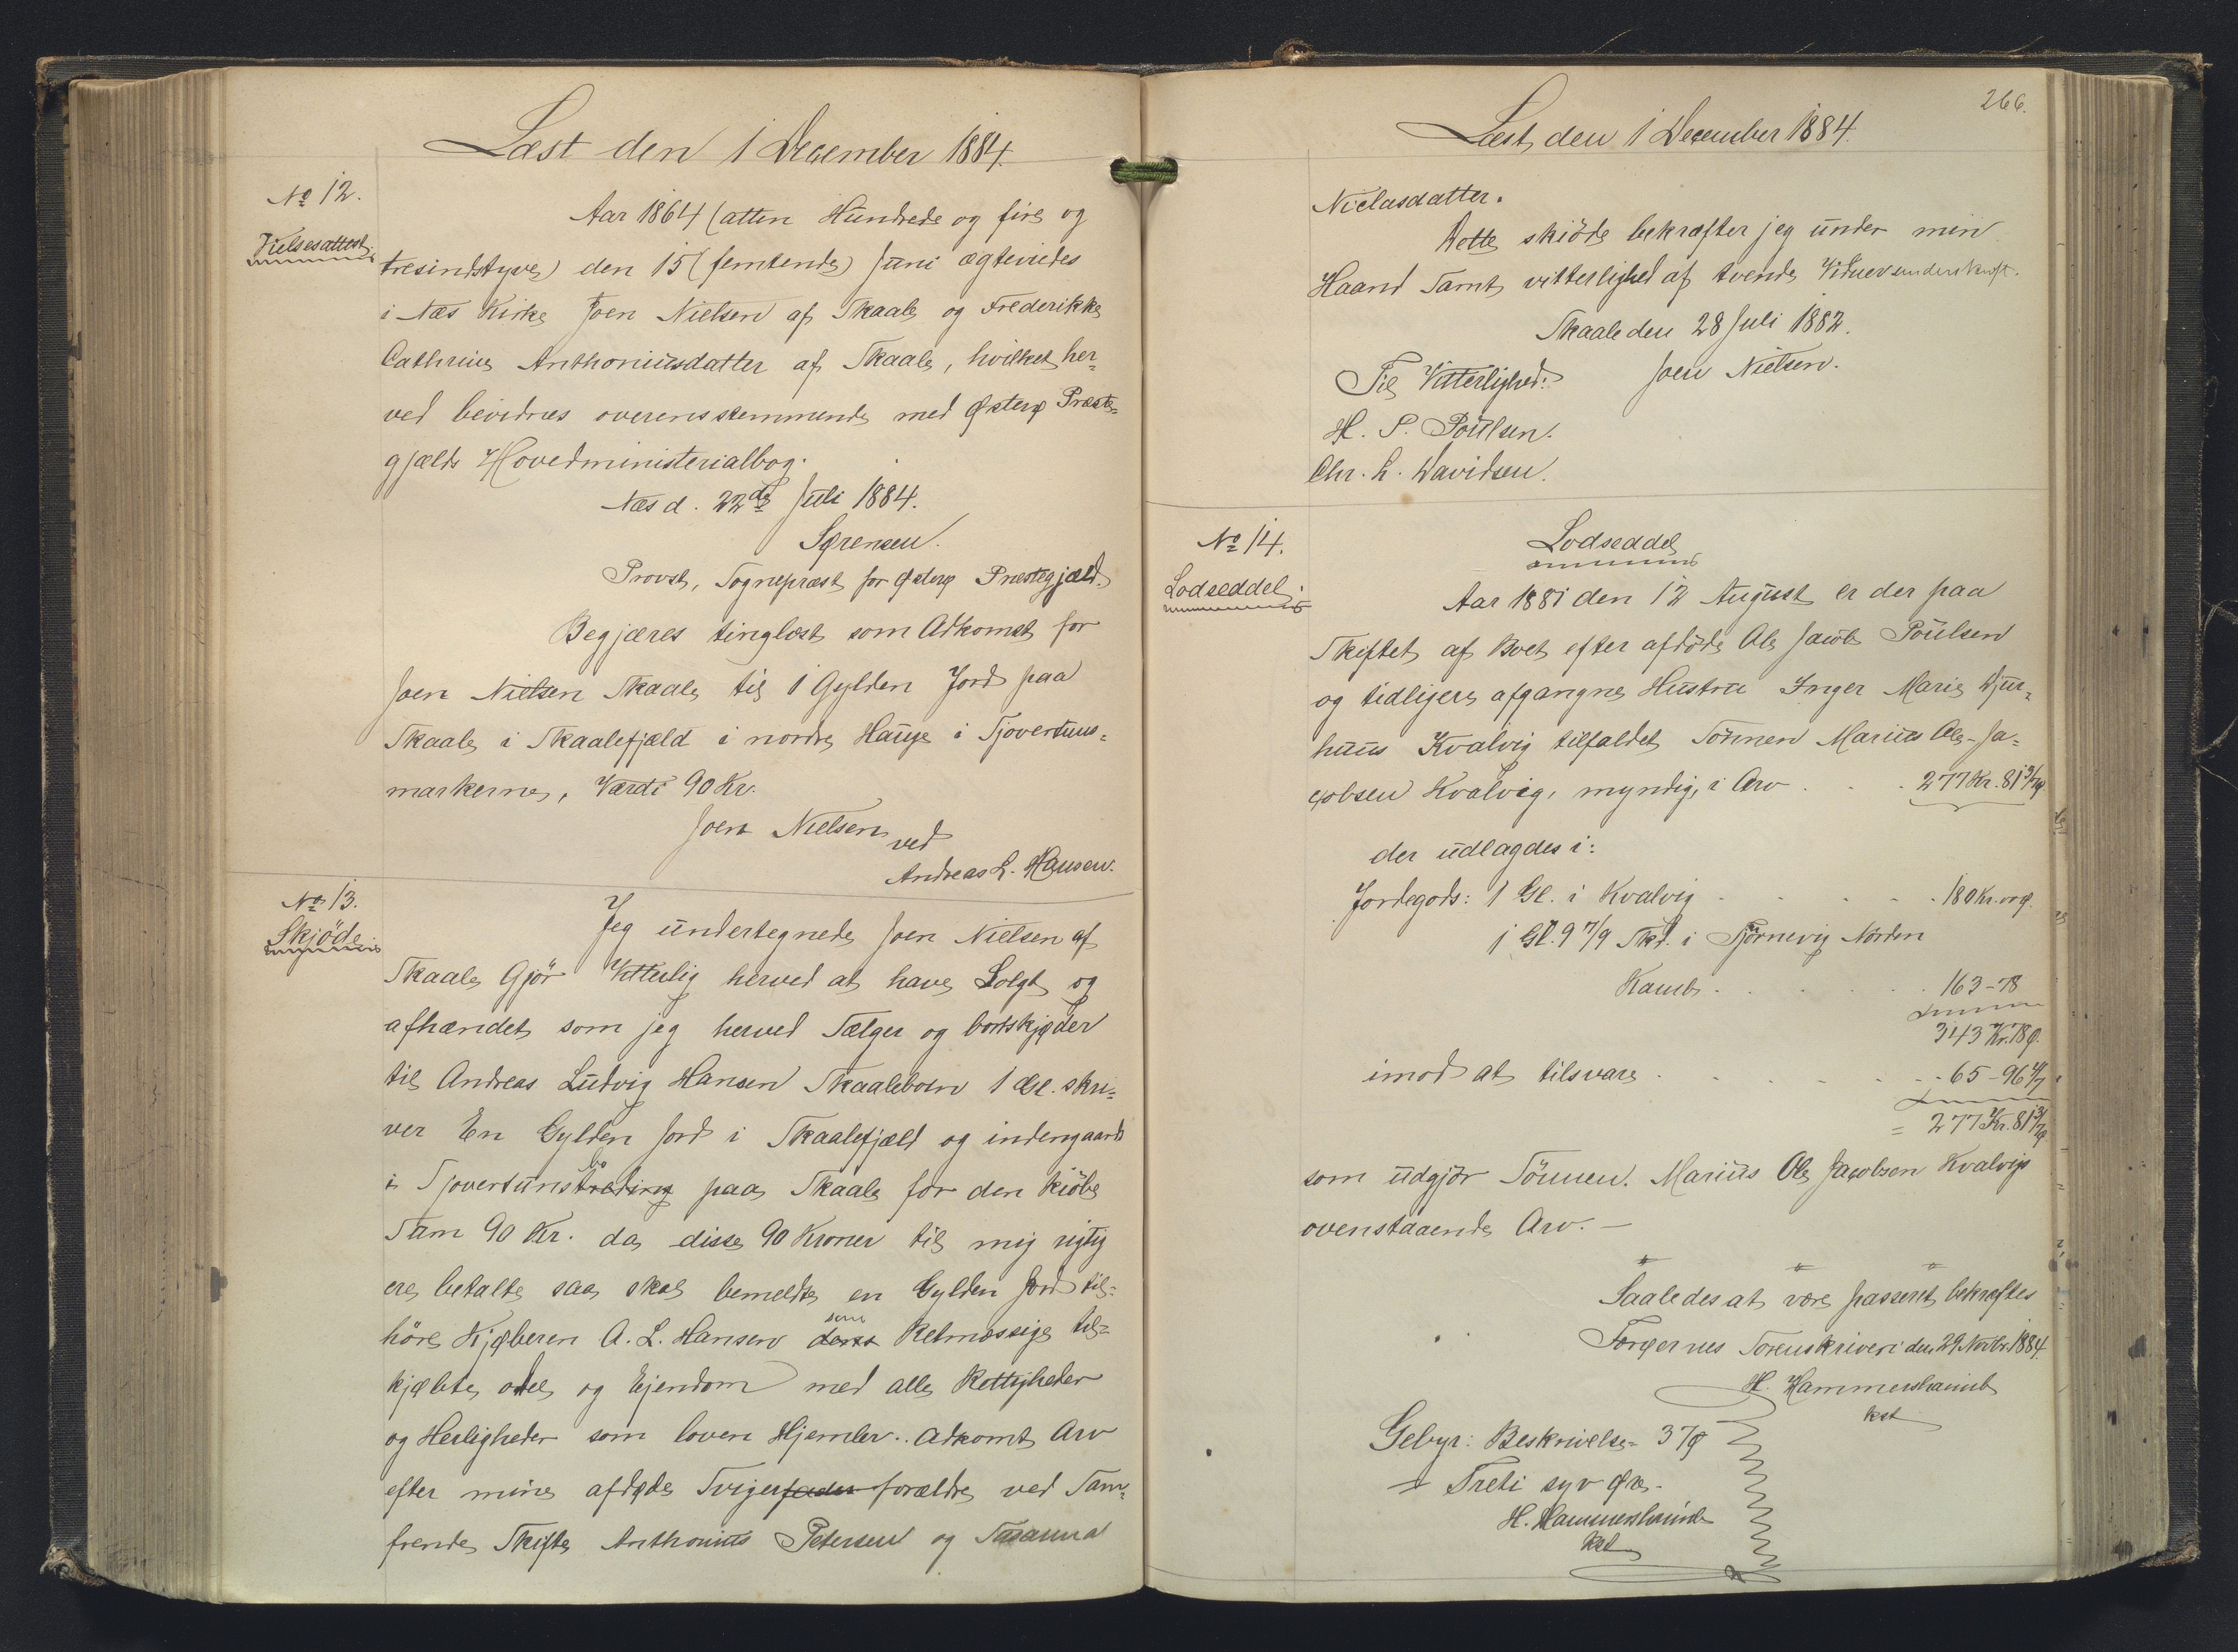 Læst den 1 December 1884.
No 12.
Vielsesattest.
Aar 1864 (atten Hundrede og fire og
tresindstyve) den 15 (femtende) Juni ægteviedes
i Næs Kirke Joen Nielsen af Skaale og Frederikke
Cathrine Anthoniusdatter af Skaale, hvilket her=
ved bevidnes overensstemmende med Østerø Præste=
gjælds Hovedministerialbog.
Næs d. 22de Juli 1884.
Sørensen.
Provst, Sognepræst for Østerø Præstegjæld.
Begjæres tinglæst som Adkomst for
Joen Nielsen Skaale til 1 Gylden Jord paa
Skaale i Skaalefjæld i nordre Hauge i Tjovertuns=
markerne, Værdi 90 Kr.
Joen Nielsen
ved
Andreas L. Hansen.
No 13.
Skjöde
Jeg undertegnede Joen Nielsen af
Skaale Gjör Vitterlig herved at have Solgt og
afhændet som jeg herved Sælger og bortskjøder
til Andreas Ludvig Hansen Skaalebotn 1 Gl. skri=
ver En Gylden Jord i Skaalefjæld og indengaards
i Tjovertuns paa Skaale for den kiöbe
Sum 90 Kr. da disse 90 Kroner til mig rigtig
ere betalte saa skal bemeldte en Gylden Jord til=
höre Kjøberen A. L. Hansen som Retmæssige til=
kjøbte odel og Ejendom med alle Rettigheder
og Herligheder som loven Hjemler. Adkomst Arv
efter mine afdøde Svigerfader forældre ved Sam=
frende Skifte Anthonius Petersen og Susanna
266.
Læst den 1 December 1884.
Niclasdatter.
Dette skiöde bekræfter jeg under min
Haand Samt vitterlighed af tvende Vidners underskrift.
Skaale den 28 Juli 1882.
Til Vitterlighed: Joen Nielsen.
H. P. Poulsen.
Chr. L. Davidsen.
No 14.
Lodseddel.
Lodseddel
Aar 1881 den 12 August er der paa
Skiftet af Boet efter afdöde Ole Jacob Poulsen
og tidligere afgangne Hustru Inger Marie Djur=
huus Kvalvig tilfaldet Sönnen Marius Ole Ja=
cobsen Kvalvig, myndig, i Arv . . . 277 Kr. 81 3/7 ø
der udlagdes i:
Jordegods: 1 Gl. i Kvalvig . . . . . 180 Kr. 00 ø.
1 Gl. 9 7/9 Skd. i Tjörnevig Norden
Kamb . . . . . 163-78
343 Kr. 78 ø.
imod at tilsvare . . . . . 65-96 4/7
= 277 Kr. 81 3/7 ø
som udgjör Sönnen. Marius Ole Jacobsen Kvalvigs
ovenstaaende Arv. —
Saaledes at være passeret, bekræftes
Færøernes Sorenskriveri den 29 Novbr. 1884.
H. Hammershaimb
kst
Gebyr: Beskrivelse = 37 ø
Treti syv Øre.
H. Hammershaimb
kst